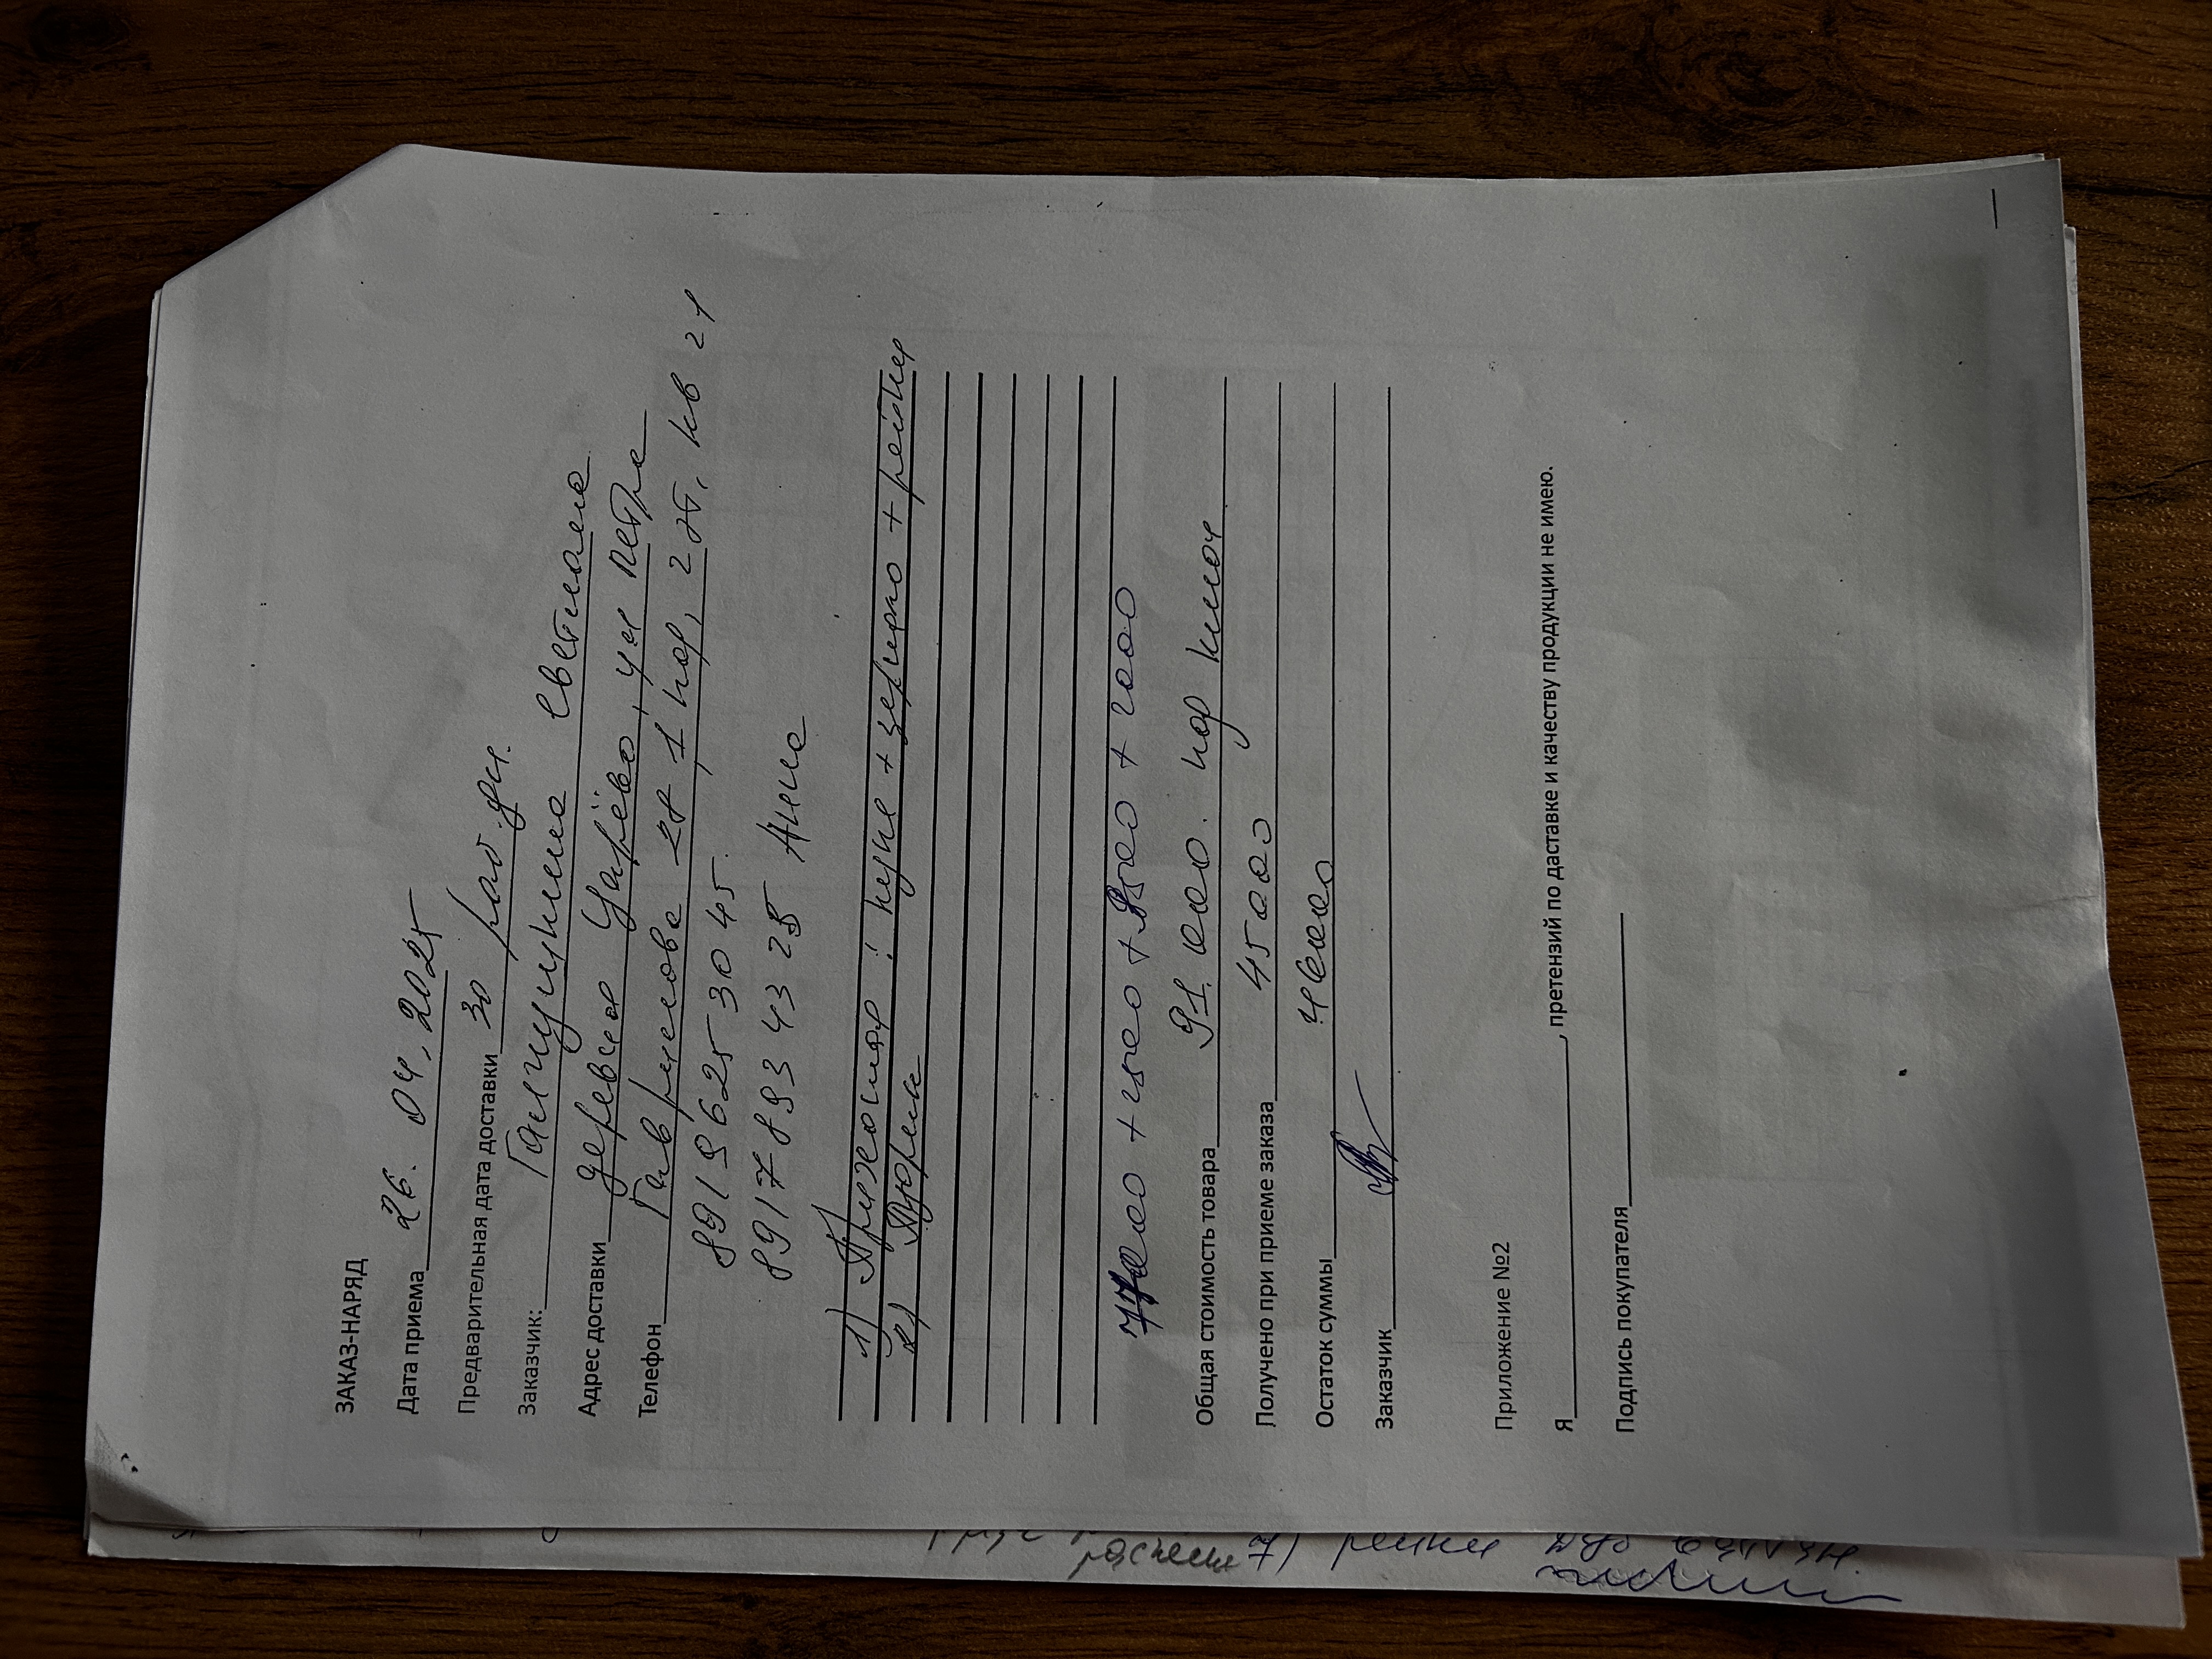 ЗАКАЗ-НАРЯД
Дата приема 26. 04, 2025
Предварительная дата доставки 30 раб.дн.
Заказчик: Светлана
Адрес доставки деревня Царёво, ул Петра
Телефон Гаврилова 28, 1 под, 2 эт, кв 21
8919 625 30 45
8917 893 43 25 Анна
1) Прихожая : купе + зеркало + рейки
2)
77000 + 2500 + 9500 + 2000
Общая стоимость товара 91.000. под ключ
Получено при приеме заказа 45000
Остаток суммы 46000
Заказчик
Приложение №2
Я , претензий по даставке и качеству продукции не имею.
Подпись покупателя